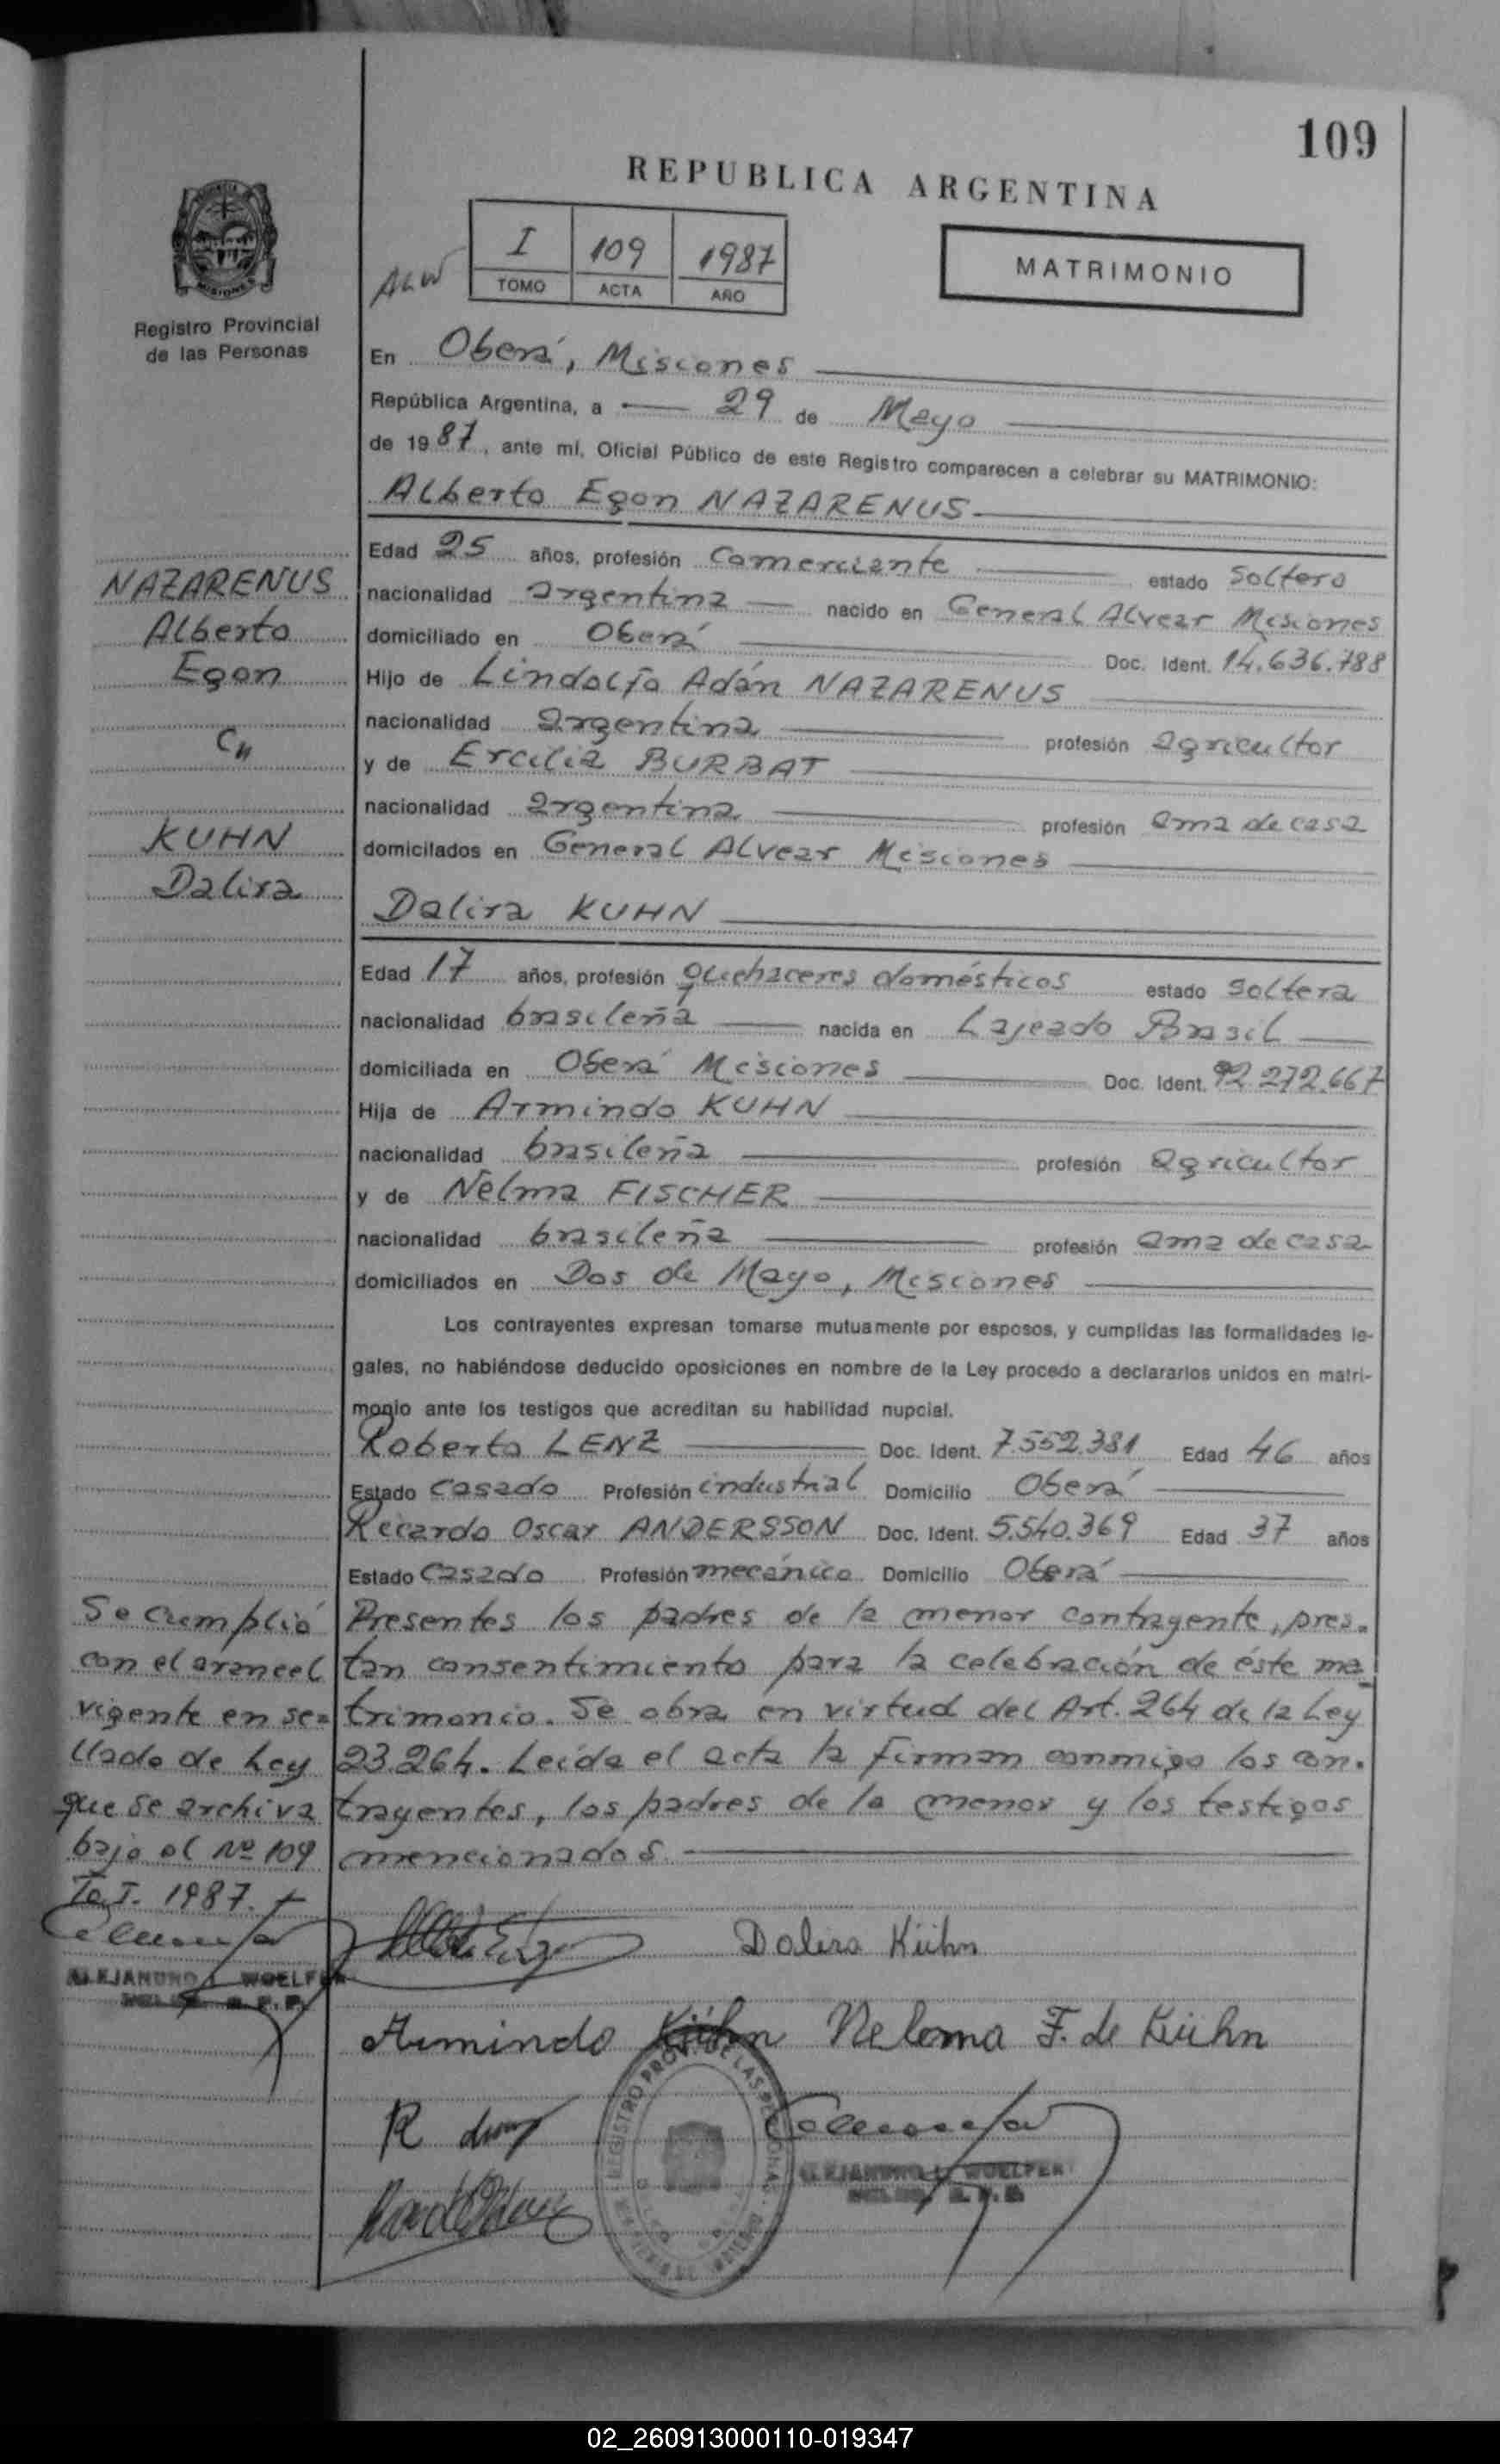 109
REPUBLICA ARGENTINA
I 109 1987
TOMO ACTA AÑO
ALW
MATRIMONIO
MISIONES
Registro Provincial
de las Personas
En Oberá, Misiones
República Argentina, a 29 de Mayo
de 1987, ante mí, Oficial Público de este Registro comparecen a celebrar su MATRIMONIO:
Alberto Egon NAZARENUS
Edad 25 años, profesión Comerciante estado Soltero
NAZARENUS
nacionalidad argentina nacido en General Alvear Misiones
Alberto
domiciliado en Oberá Doc. Ident. 14.636.788
Egon
Hijo de Lindolfo Adán NAZARENUS
nacionalidad argentina profesión agricultor
Cn
y de Ercilia BURBAT
nacionalidad argentina profesión ama de casa
KUHN
domicilados en General Alvear Misiones
Dalira
Dalira KUHN
Edad 17 años, profesión quehaceres domésticos estado soltera
nacionalidad brasileña nacida en Lajeado Brasil
domiciliada en Oberá Misiones Doc. Ident. 92.272.667
Hija de Armindo KUHN
nacionalidad brasileña profesión agricultor
y de Nelma FISCHER
nacionalidad brasileña profesión ama de casa
domiciliados en Dos de Mayo, Misiones
Los contrayentes expresan tomarse mutuamente por esposos, y cumplidas las formalidades le-
gales, no habiéndose deducido oposiciones en nombre de la Ley procedo a declararlos unidos en matri-
monio ante los testigos que acreditan su habilidad nupcial.
Roberto LENZ Doc. Ident. 7.552.381 Edad 46 años
Estado casado Profesión industrial Domicilio Oberá
Ricardo Oscar ANDERSSON Doc. Ident. 5.540.369 Edad 37 años
Estado casado Profesión mecánico Domicilio Oberá
Presentes los padres de la menor contrayente, pres-
tan consentimiento para la celebración de éste ma-
trimonio. Se obra en virtud del Art. 264 de la Ley
23.264. Leída el acta la firman conmigo los con-
trayentes, los padres de la menor y los testigos
mencionados
Se cumplió
con el arancel
vigente en se-
llado de Ley
que se archiva
bajo el Nº 109
To I. 1987.
ALEJANDRO L. WOELFER
Dalira Kühn
Armindo Kühn Neloma F. de Kühn
REGISTRO PROV. DE LAS PERSONAS
ALEJANDRO L. WOELFER
02_260913000110-019347